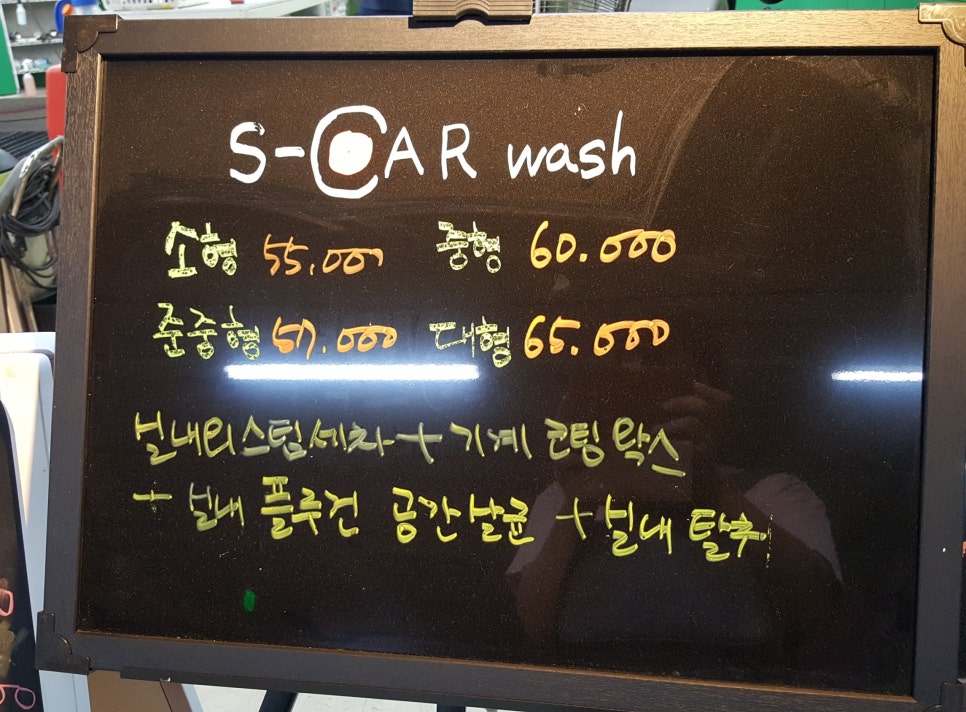 S-CAR wash
소형 55.000 중형 60.000
준중형 57.000 대형 65.000
실내외스팀세차+기계 코팅왁스
+ 실내 플루건 공간살균 + 실내 탈취